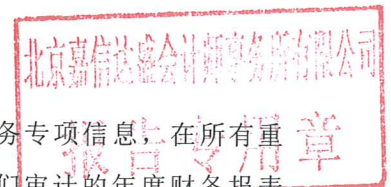 北京嘉信达盛会计师事务所有限公司
务专项信息，在所有重
报告专用章
们审计的年度财务报表